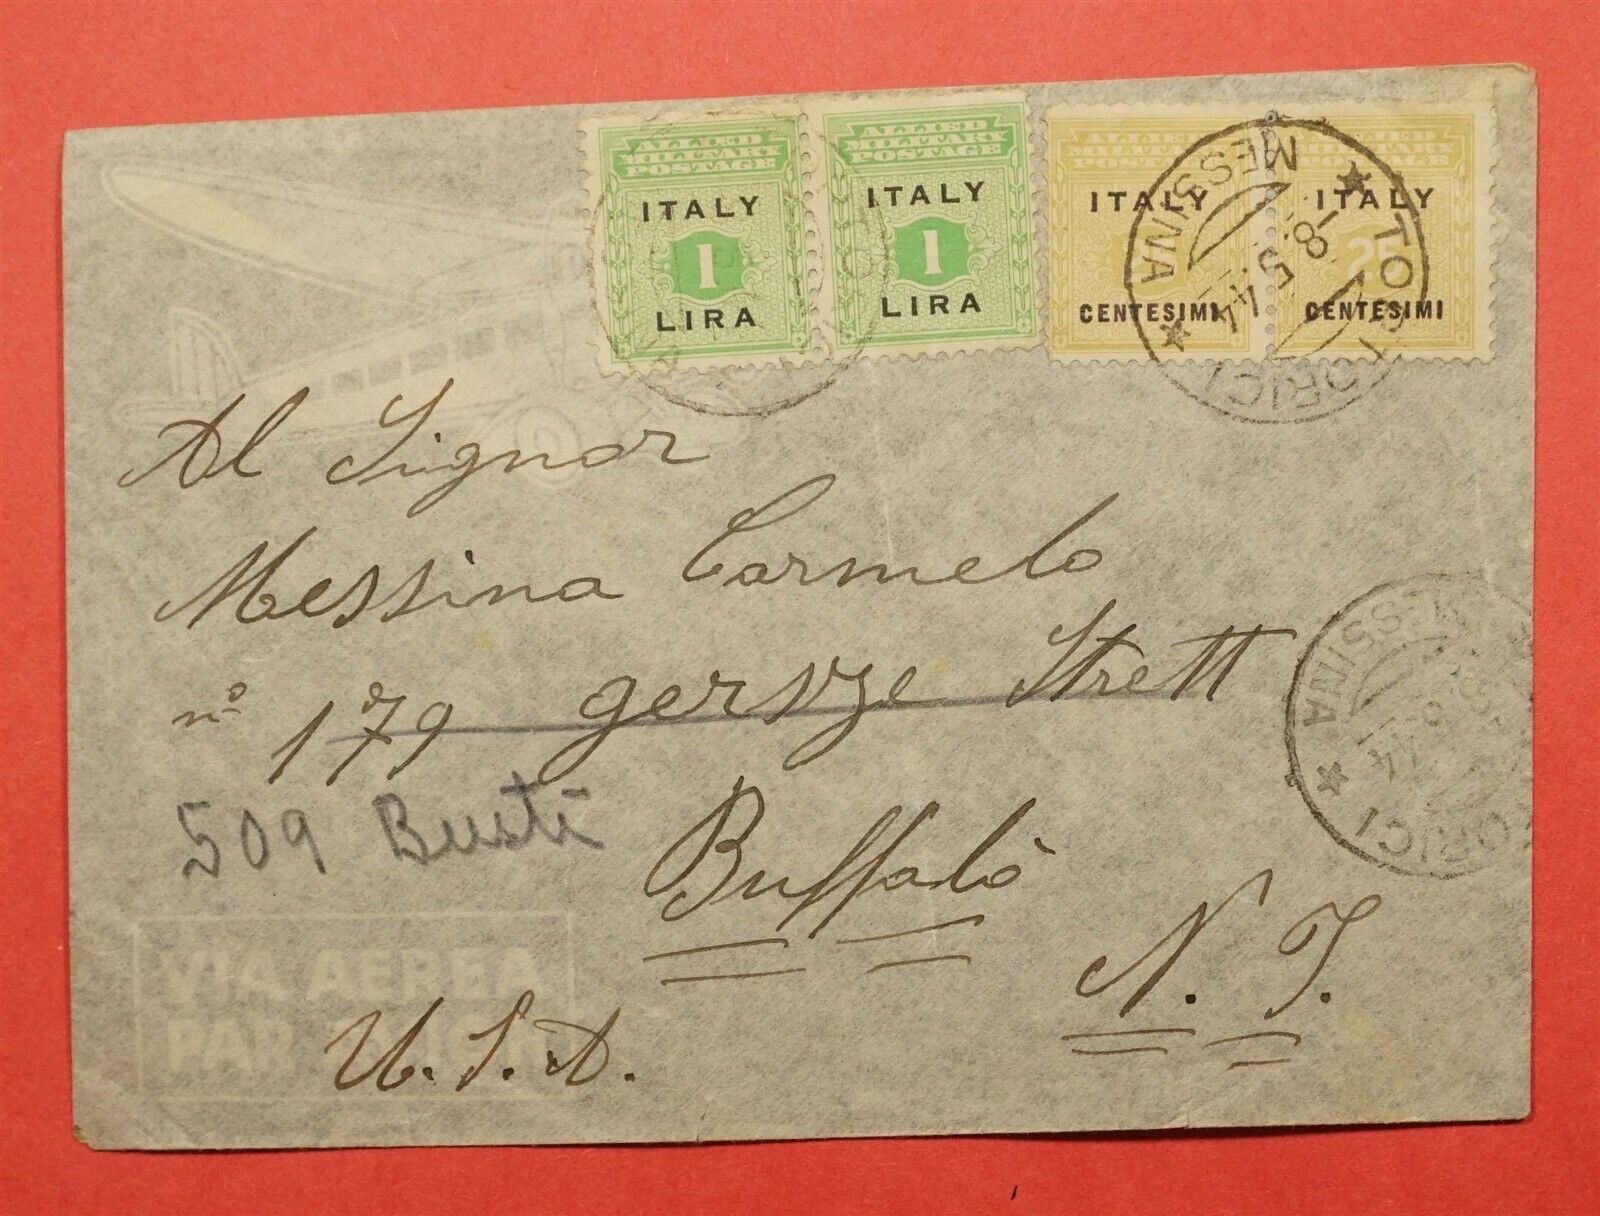 ALLIED MILITARY POSTAGE
ITALY
1
LIRA
ALLIED MILITARY POSTAGE
ITALY
1
LIRA
ALLIED MILITARY POSTAGE
ITALY
CENTESIMI
ALLIED MILITARY POSTAGE
ITALY
25
CENTESIMI
TORTORICI
MESSINA
18.5.44
Al Signor
Messina Carmelo
n° 179 gersze Strett
509 Busti
Buffalò
N. J.
U.S.A.
VIA AEREA
PAR AVION
MESSINA
ORICI